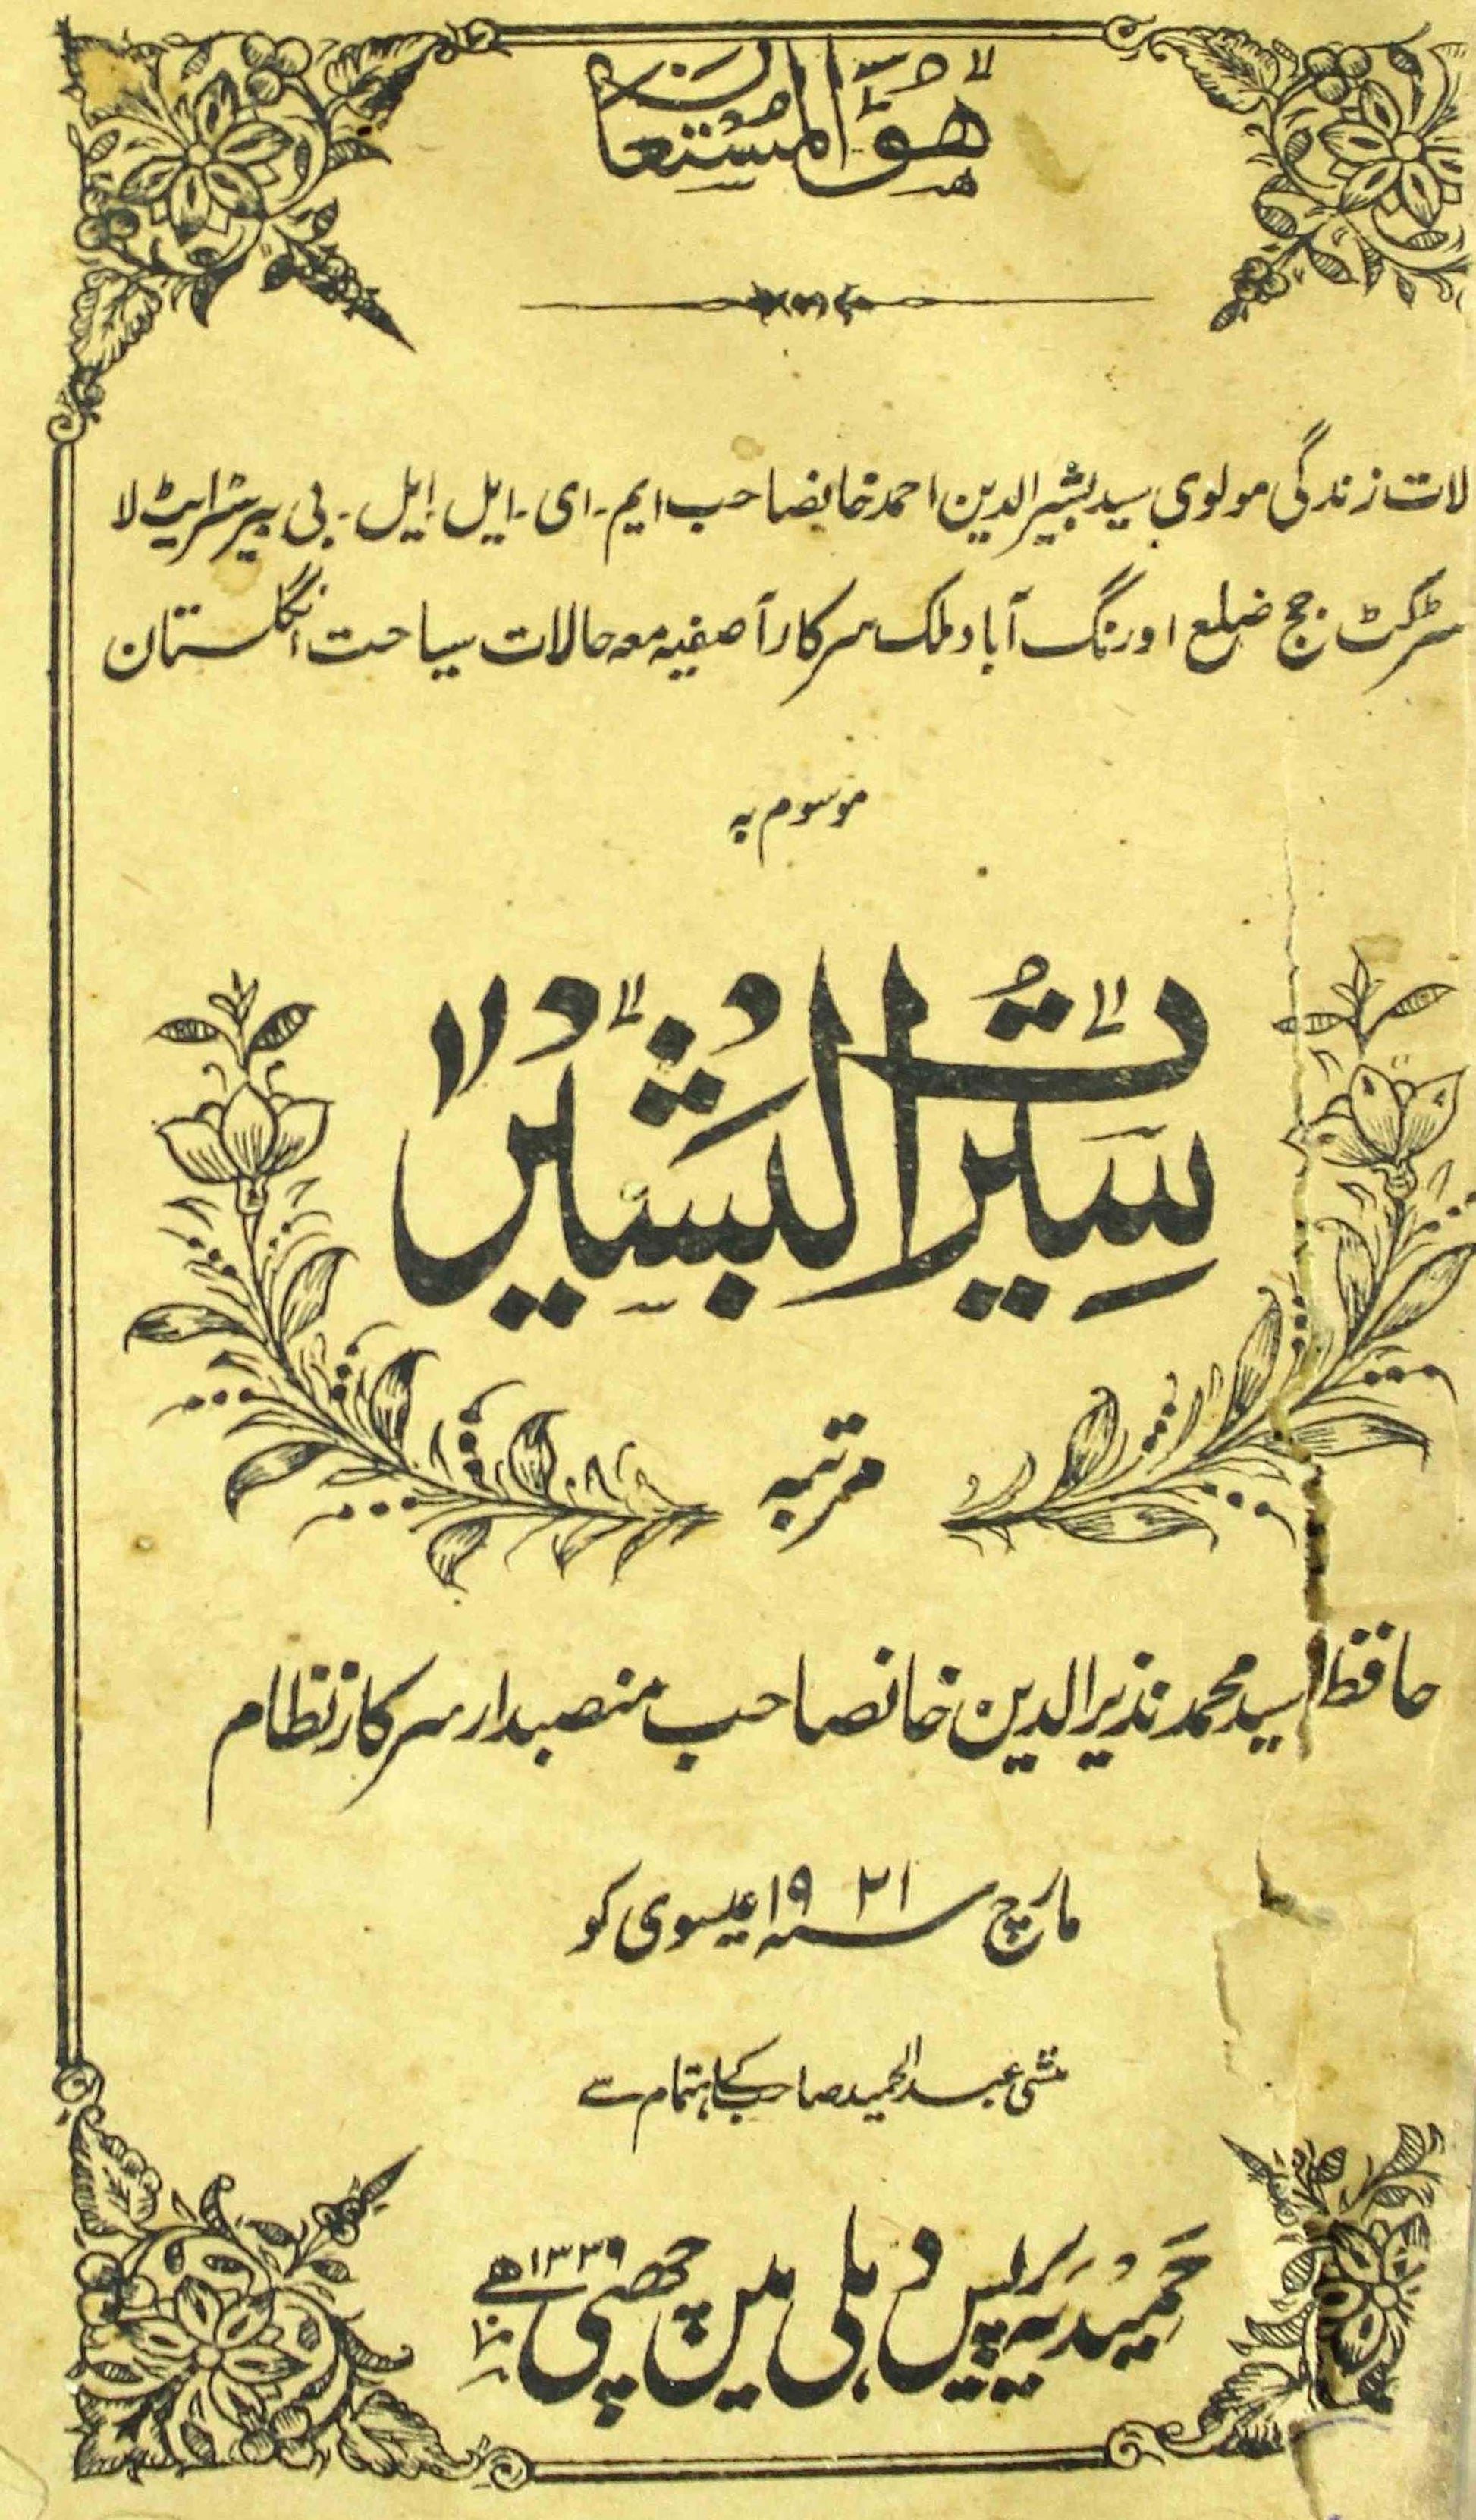 هو المستعان
لات زندگی مولوی سید بشیر الدین احمد خانصاحب ایم۔ ای۔ ایل ایل۔ بی بیرسٹر ایٹ لا
سٹرکٹ جج ضلع اورنگ آباد ملک سرکار آصفیہ معہ حالات سیاحت انگلستان
موسوم بہ
سِیرتُ البَشیر
مرتبہ
حافظ سید محمد نذیر الدین خانصاحب منصبدار سرکار نظام
مارچ سنہ ۱۹۲۱ عیسوی کو
منشی عبد الحمید صاحب کے اہتمام سے
حمیدیہ پریس دہلی میں چھپی ۱۳۳۹ھ